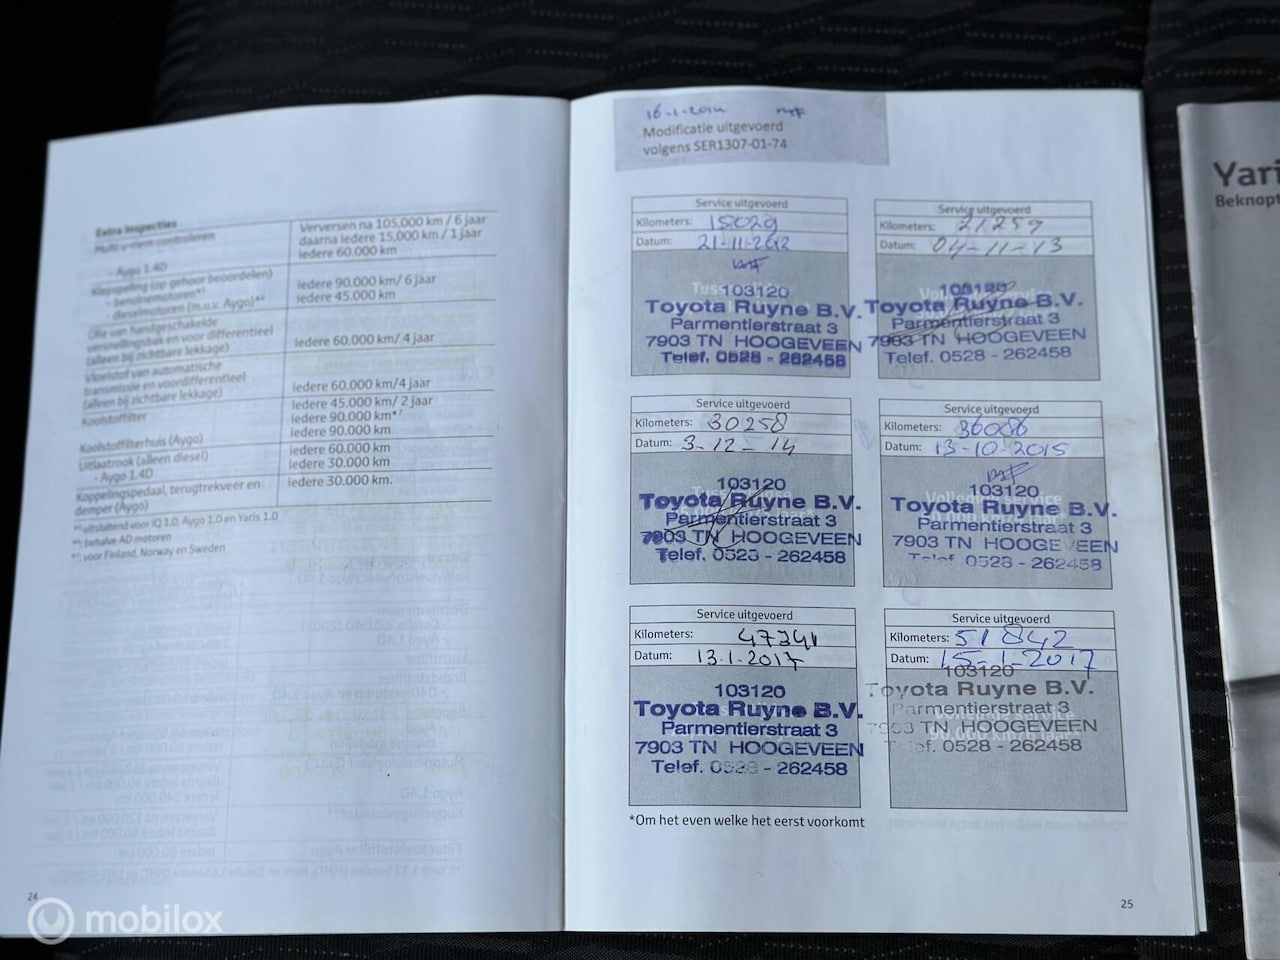 Extra inspecties
Multi v-riem controleren
Verversen na 105.000 km / 6 jaar
daarna iedere 15.000 km / 1 jaar
- Aygo 1.4D
iedere 60.000 km
Klepspeling (op gehoor beoordelen)
- benzinemotoren*⁵
iedere 90.000 km/ 6 jaar
- dieselmotoren (m.u.v. Aygo)*⁶
iedere 45.000 km
Olie van handgeschakelde
versnellingsbak en voor differentieel
(alleen bij zichtbare lekkage)
iedere 60.000 km/ 4 jaar
Vloeistof van automatische
transmissie en voordifferentieel
(alleen bij zichtbare lekkage)
iedere 60.000 km/4 jaar
Koolstoffilter
iedere 45.000 km/ 2 jaar
iedere 90.000 km*⁷
Koolstoffilterhuis (Aygo)
iedere 90.000 km
Uitlaatrook (alleen diesel)
iedere 60.000 km
- Aygo 1.4D
iedere 30.000 km
Koppelingspedaal, terugtrekveer en
demper (Aygo)
iedere 30.000 km.
uitsluitend voor IQ 1.0, Aygo 1.0 en Yaris 1.0
behalve AD motoren
voor Finland, Norway en Sweden
24
16-1-2014
Modificatie uitgevoerd
volgens SER1307-01-74
Service uitgevoerd
Kilometers: 15029
Datum: 21-11-2012
103120
Toyota Ruyne B.V.
Parmentierstraat 3
7903 TN HOOGEVEEN
Telef. 0528 - 262458
Service uitgevoerd
Kilometers: 21259
Datum: 04-11-13
103120
Toyota Ruyne B.V.
Parmentierstraat 3
7903 TN HOOGEVEEN
Telef. 0528 - 262458
Service uitgevoerd
Kilometers: 30258
Datum: 3-12-14
103120
Toyota Ruyne B.V.
Parmentierstraat 3
7903 TN HOOGEVEEN
Telef. 0528 - 262458
Service uitgevoerd
Kilometers: 36086
Datum: 13-10-2015
103120
Toyota Ruyne B.V.
Parmentierstraat 3
7903 TN HOOGEVEEN
Telef. 0528 - 262458
Service uitgevoerd
Kilometers: 47341
Datum: 13.1.2017
103120
Toyota Ruyne B.V.
Parmentierstraat 3
7903 TN HOOGEVEEN
Telef. 0528 - 262458
Service uitgevoerd
Kilometers: 51842
Datum: 15-1-2017
103120
Toyota Ruyne B.V.
Parmentierstraat 3
7903 TN HOOGEVEEN
Telef. 0528 - 262458
*Om het even welke het eerst voorkomt
25
Yari
Beknopt
mobilox